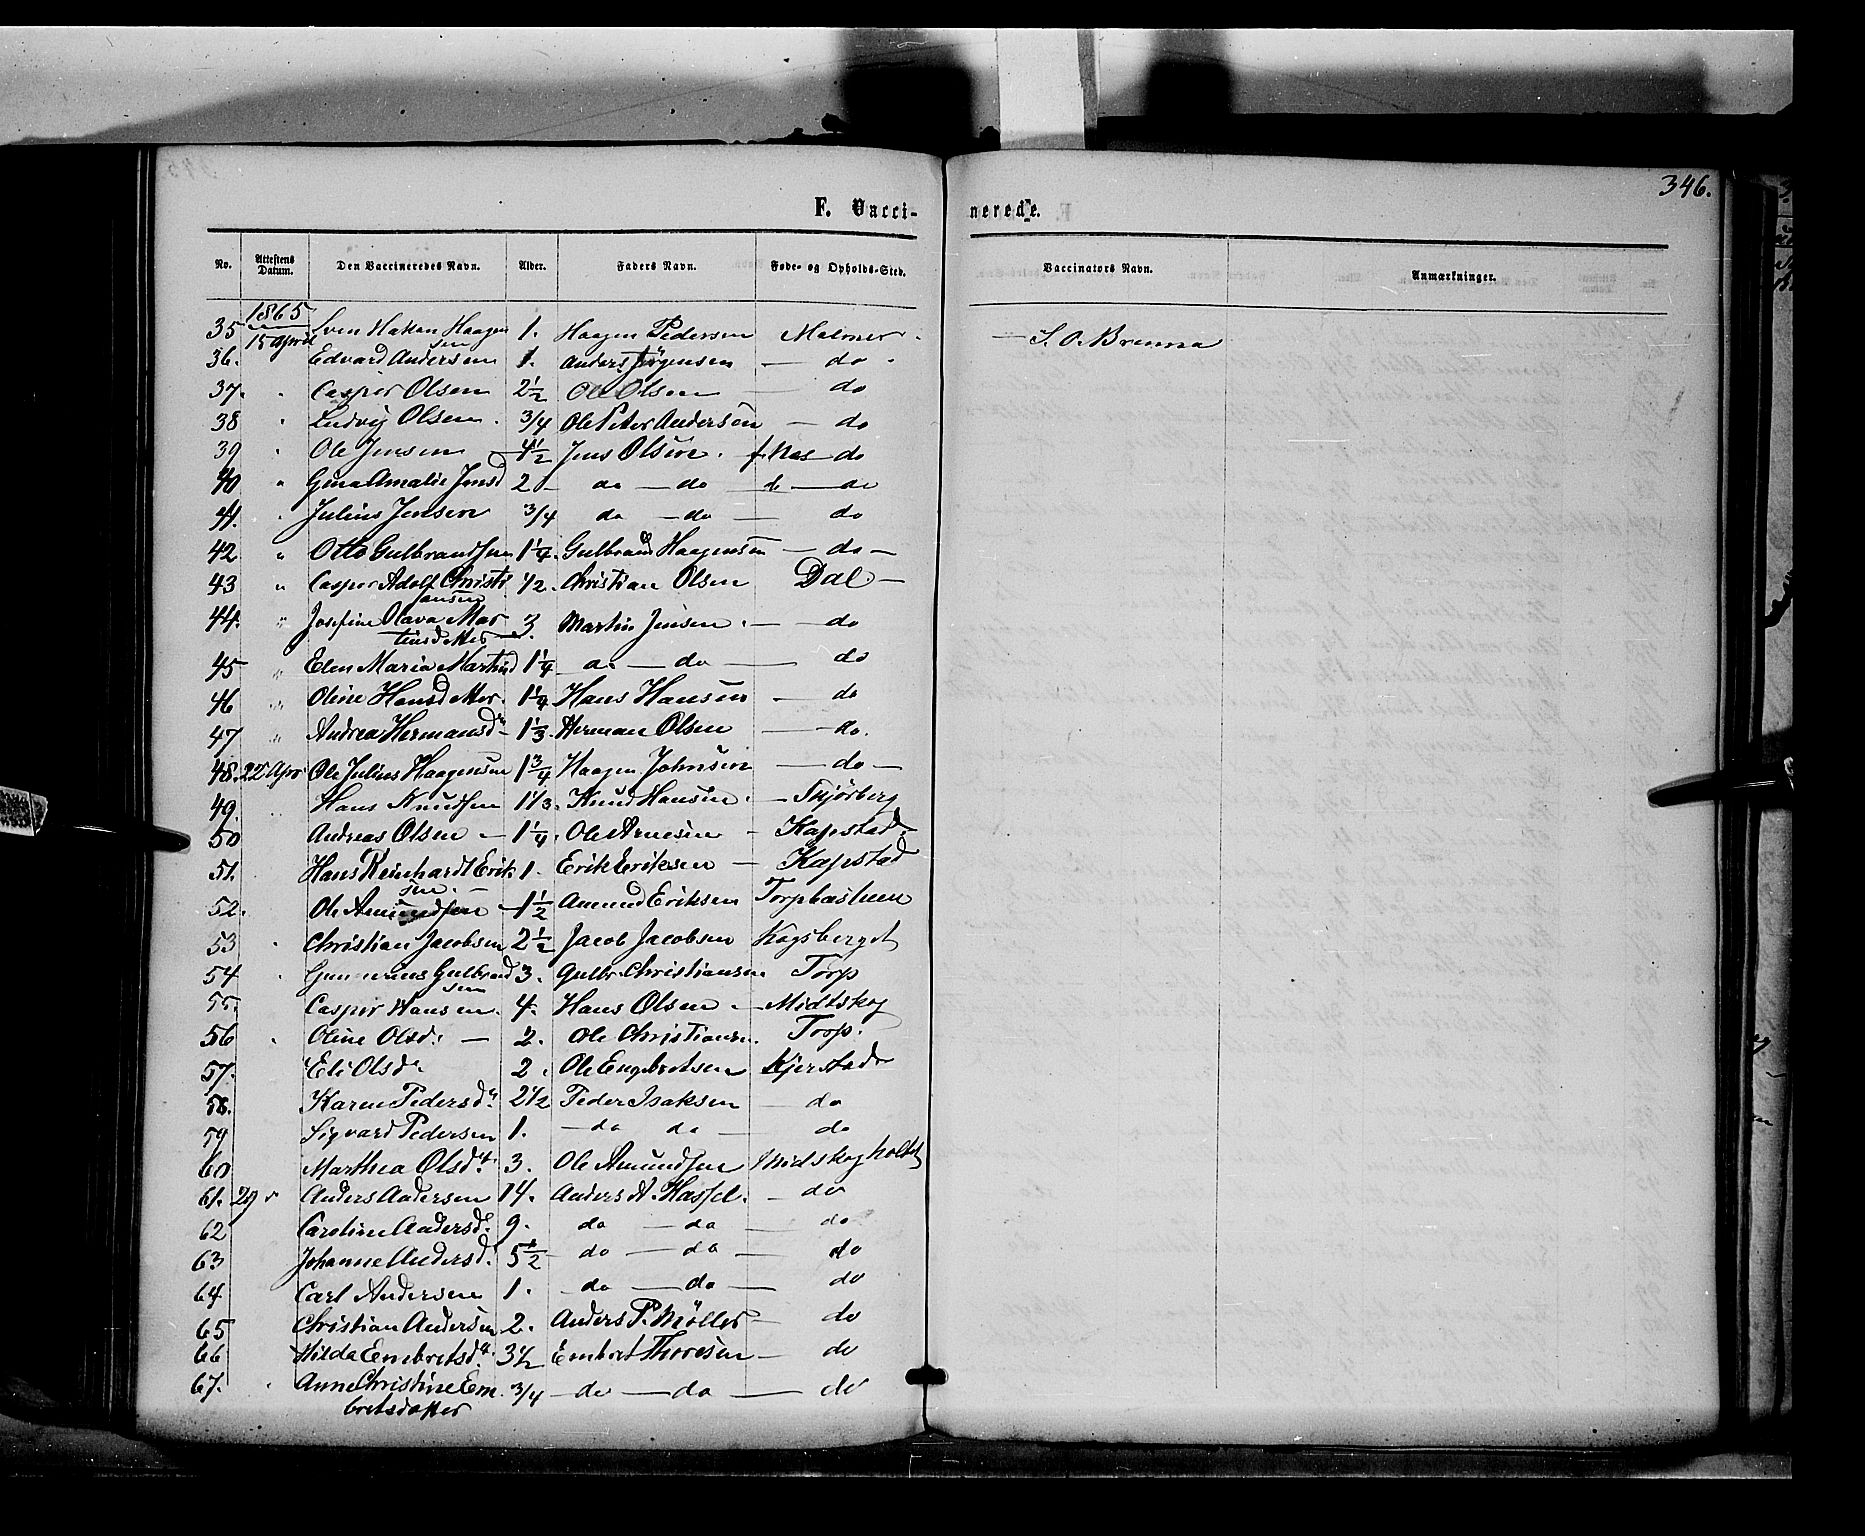 346.
F. Vaccinerede.
No. Attestens Datum. Den Vaccineredes Navn. Alder. Faders Navn. Føde- og Opholds-Sted. Vaccinators Navn. Anmærkninger.
1865
35 15 April Sven Hakan Haagensen 1. Haagen Pedersen Malmer. — S. O. Brenna
36. Edvard Andersen 1. Anders Jørgensen — do
37. " Casper Olsen 2½ Ole Olsen — do
38 " Ludvig Olsen. ¾ Ole Peter Andersen — do
39 " Ole Jensen 4½ Jens Olsen. f. Næs do
40 " Gina Amalie Jensd 2 — do — do do — do
41. " Julius Jensen ¾ do — do — do
42 " Otto Gulbrandsen 1¼. Gulbrand Haagensen — do —
43 " Casper Adolf Christiansen ½. Christian Olsen Dal —
44. " Josefine Olava Martinsdatter 3. Martin Jensen. — do
45 " Elen Maria Martinsd 1¼ do — do — do
46 " Oline Hansdatter. 1¼ Hans Hansen — do
47 " Andrea Hermansdr 1⅓ Herman Olsen — do.
48. 22 Apr Ole Julius Haagensen 1¾ Haagen Johnsen — do —
49. " Hans Knudsen 1⅓. Knud Hansen. —
50 Andreas Olsen — 1¼. Ole Arnesen — Kapstad.
51. Hans Reinhardt Eriksen. 1. Erik Eriksen — Kapstad
52. Ole Amundsen — 1½ Amund Eriksen
53 " Christian Jacobsen 2½ Jacob Jacobsen Kogsberget
54 " Gulbrandsen 3. Gulbr. Christiansen. Torp
55. Casper Hansen. 4. Hans Olsen — Midtskog
56 " Oline Olsd: — 2. Ole Christiansen. Torp.
57. Eli Olsdr 2. Ole Engebretsen Kjerstad
58. Karen Pedersdr 2½ Peder Isaksen — do
59 Sigvard Pedersen 1. — do do — do
60 Marthea Olsdr. 3. Ole Amundsen Midskogholtet
61. 29 " Anders Andersen 14. Anders A. Hassel. — do
62 Caroline Andersd. 9. do — do — do
63 Johanne Andersd. 5½ do — do — do
64 Carl Andersen 1. do — do — do
65 Christian Andersen 2. Anders P. Møller — do
66 Hilda Embretsdr. 3½ Embret Thoresen — do
67. " Anne Christine Embretsdatter ¾ — do — do — do